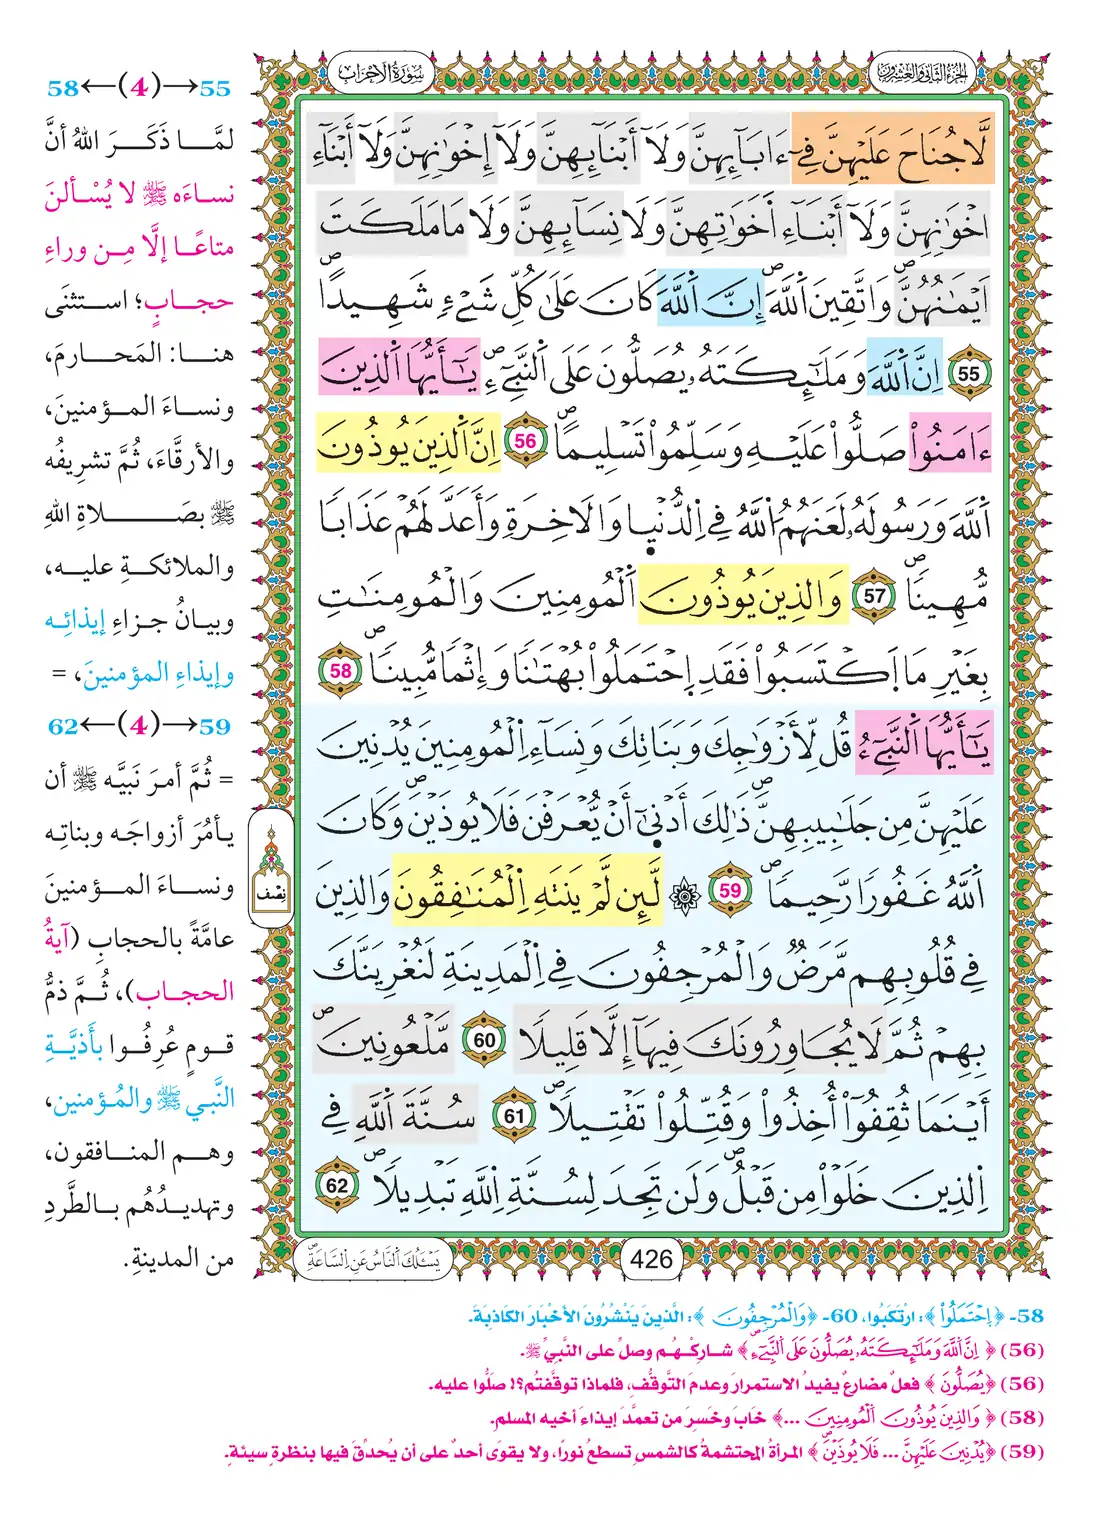 الجزء الثاني والعشرون
سورة الأحزاب
لَّا جُنَاحَ عَلَيْهِنَّ فِےٓ ءَابَآئِهِنَّ وَلَآ أَبْنَآئِهِنَّ وَلَآ إِخْوَٰنِهِنَّ وَلَآ أَبْنَآءِ
اِ۪خْوَٰنِهِنَّ وَلَآ أَبْنَآءِ اَ۬خَوَٰتِهِنَّ وَلَا نِسَآئِهِنَّ وَلَا مَا مَلَكَتَ
اَيْمَٰنُهُنَّۖ وَاتَّقِينَ اَ۬للَّهَۖ إِنَّ اَ۬للَّهَ كَانَ عَلَىٰ كُلِّ شَےْءٖ شَهِيداًۖ
55 اِنَّ اَ۬للَّهَ وَمَلَٰٓئِكَتَهُۥ يُصَلُّونَ عَلَى اَ۬لنَّبِےٓءِۖ يَٰٓأَيُّهَا اَ۬لذِينَ
ءَامَنُواْ صَلُّواْ عَلَيْهِ وَسَلِّمُواْ تَسْلِيماًۖ 56 اِنَّ اَ۬لذِينَ يُوذُونَ
اَ۬للَّهَ وَرَسُولَهُۥ لَعَنَهُمُ اُ۬للَّهُ فِے اِ۬لدُّنْي۪ا وَالَاخِرَةِ وَأَعَدَّ لَهُمْ عَذَاباٗ
مُّهِيناٗۖ 57 وَالذِينَ يُوذُونَ اَ۬لْمُومِنِينَ وَالْمُومِنَٰتِ
بِغَيْرِ مَا اَ۪كْتَسَبُواْ فَقَدِ اِ۪حْتَمَلُواْ بُهْتَٰناٗ وَإِثْماٗ مُّبِيناٗۖ 58
يَٰٓأَيُّهَا اَ۬لنَّبِےٓءُ قُل لِّأَزْوَٰجِكَ وَبَنَاتِكَ وَنِسَآءِ اِ۬لْمُومِنِينَ يُدْنِينَ
عَلَيْهِنَّ مِن جَلَٰبِيبِهِنَّۖ ذَٰلِكَ أَدْن۪يٰٓ أَنْ يُّعْرَفْنَ فَلَا يُوذَيْنَۖ وَكَانَ
اَ۬للَّهُ غَفُوراٗ رَّحِيماٗۖ 59 ۞ لَّئِن لَّمْ يَنتَهِ اِ۬لْمُنَٰفِقُونَ وَالذِينَ
فِے قُلُوبِهِم مَّرَضٞ وَالْمُرْجِفُونَ فِے اِ۬لْمَدِينَةِ لَنُغْرِيَنَّكَ
بِهِمْ ثُمَّ لَا يُجَاوِرُونَكَ فِيهَآ إِلَّا قَلِيلاٗ 60 مَّلْعُونِينَۖ
أَيْنَمَا ثُقِفُوٓاْ أُخِذُواْ وَقُتِّلُواْ تَقْتِيلاٗۖ 61 سُنَّةَ اَ۬للَّهِ فِے
اِ۬لذِينَ خَلَوْاْ مِن قَبْلُۖ وَلَن تَجِدَ لِسُنَّةِ اِ۬للَّهِ تَبْدِيلاٗۖ 62
نصف
426
يَسْـَٔلُكَ اَ۬لنَّاسُ عَنِ اِ۬لسَّاعَةِۖ
55→(4)←58
لمَّا ذَكَرَ اللهُ أنَّ
نساءَه ﷺ لا يُسْألنَ
متاعًا إلَّا مِن وراءِ
حجابٍ؛ استثنَى
هنا: المَحارمَ،
ونساءَ المؤمنينَ،
والأرقَّاءَ، ثُمَّ تشريفُه
ﷺ بصَلاةِ اللهِ
والملائكةِ عليه،
وبيانُ جزاءِ إيذائِه
وإيذاءِ المؤمنينَ، =
59→(4)←62
= ثُمَّ أمرَ نَبيَّه ﷺ أن
يأمُرَ أزواجَه وبناتِه
ونساءَ المؤمنينَ
عامَّةً بالحجابِ (آيةُ
الحجابِ)، ثُمَّ ذمُّ
قومٍ عُرِفُوا بأَذيَّةِ
النَّبي ﷺ والمُؤمنين،
وهم المنافقون،
وتهديدُهُم بالطَّردِ
من المدينةِ.
58- ﴿اِ۪حْتَمَلُواْ﴾: ارْتَكَبُوا، 60- ﴿وَالْمُرْجِفُونَ﴾: الَّذِينَ يَنْشُرُونَ الأخْبَارَ الكَاذِبَةَ.
(56) ﴿اِنَّ اَ۬للَّهَ وَمَلَٰٓئِكَتَهُۥ يُصَلُّونَ عَلَى اَ۬لنَّبِےٓءِۖ﴾ شاركْهُم وصلِّ على النَّبيِّ ﷺ.
(56) ﴿يُصَلُّونَ﴾ فعلٌ مضارعٌ يفيدُ الاستمرارَ وعدمَ التَّوقُّفِ، فلماذا توقَّفتُم؟! صلُّوا عليه.
(58) ﴿وَالذِينَ يُوذُونَ اَ۬لْمُومِنِينَ ...﴾ خابَ وخَسِرَ من تعمَّدَ إيذاءَ أخيه المسلمِ.
(59) ﴿يُدْنِينَ عَلَيْهِنَّ ... فَلَا يُوذَيْنَۖ﴾ المرأةُ المحتشمةُ كالشمسِ تسطعُ نُورًا، ولا يقوَى أحدٌ على أن يُحدِّقَ فيها بنظرةٍ سيئةٍ.